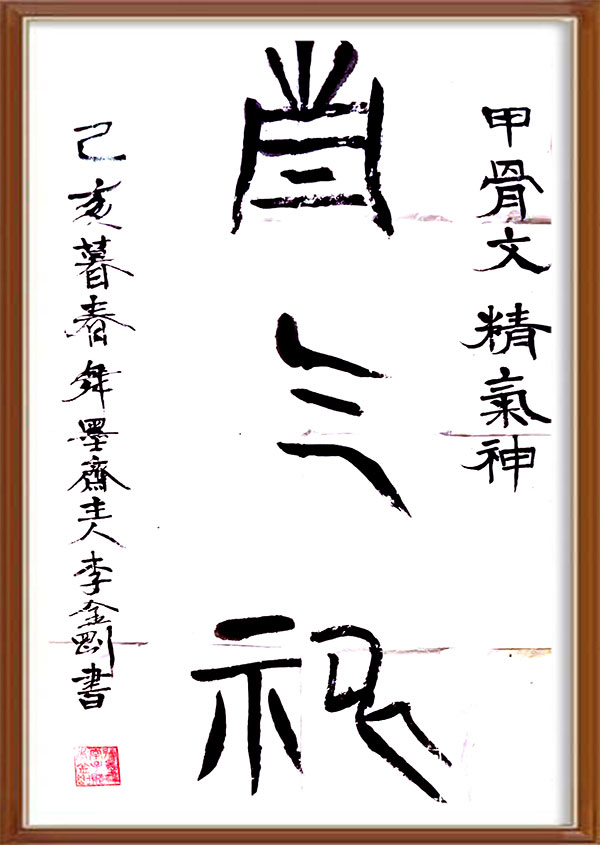 甲骨文 精氣神
精气神
己亥暮春舞墨齋主人李金剛書